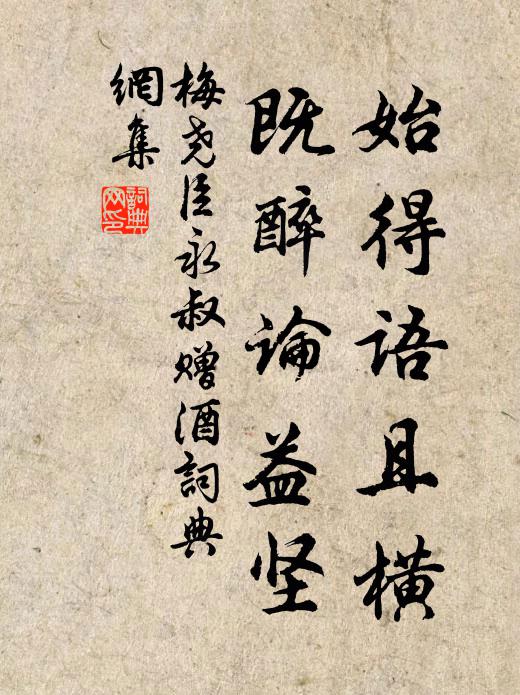 始得语且横
既醉论益坚
梅尧臣永叔赠酒詞典
網集
詞典网印